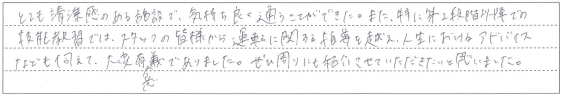 とても清潔感のある施設で、気持ち良く通うことができた。また、特に第2段階以降での
技能教習では、スタッフの皆様から運転に関する指導を越え、人生におけるアドバイス
なども伺えて、大変有義でありました。ぜひ周りにも紹介させていただきたいと思いました。
意